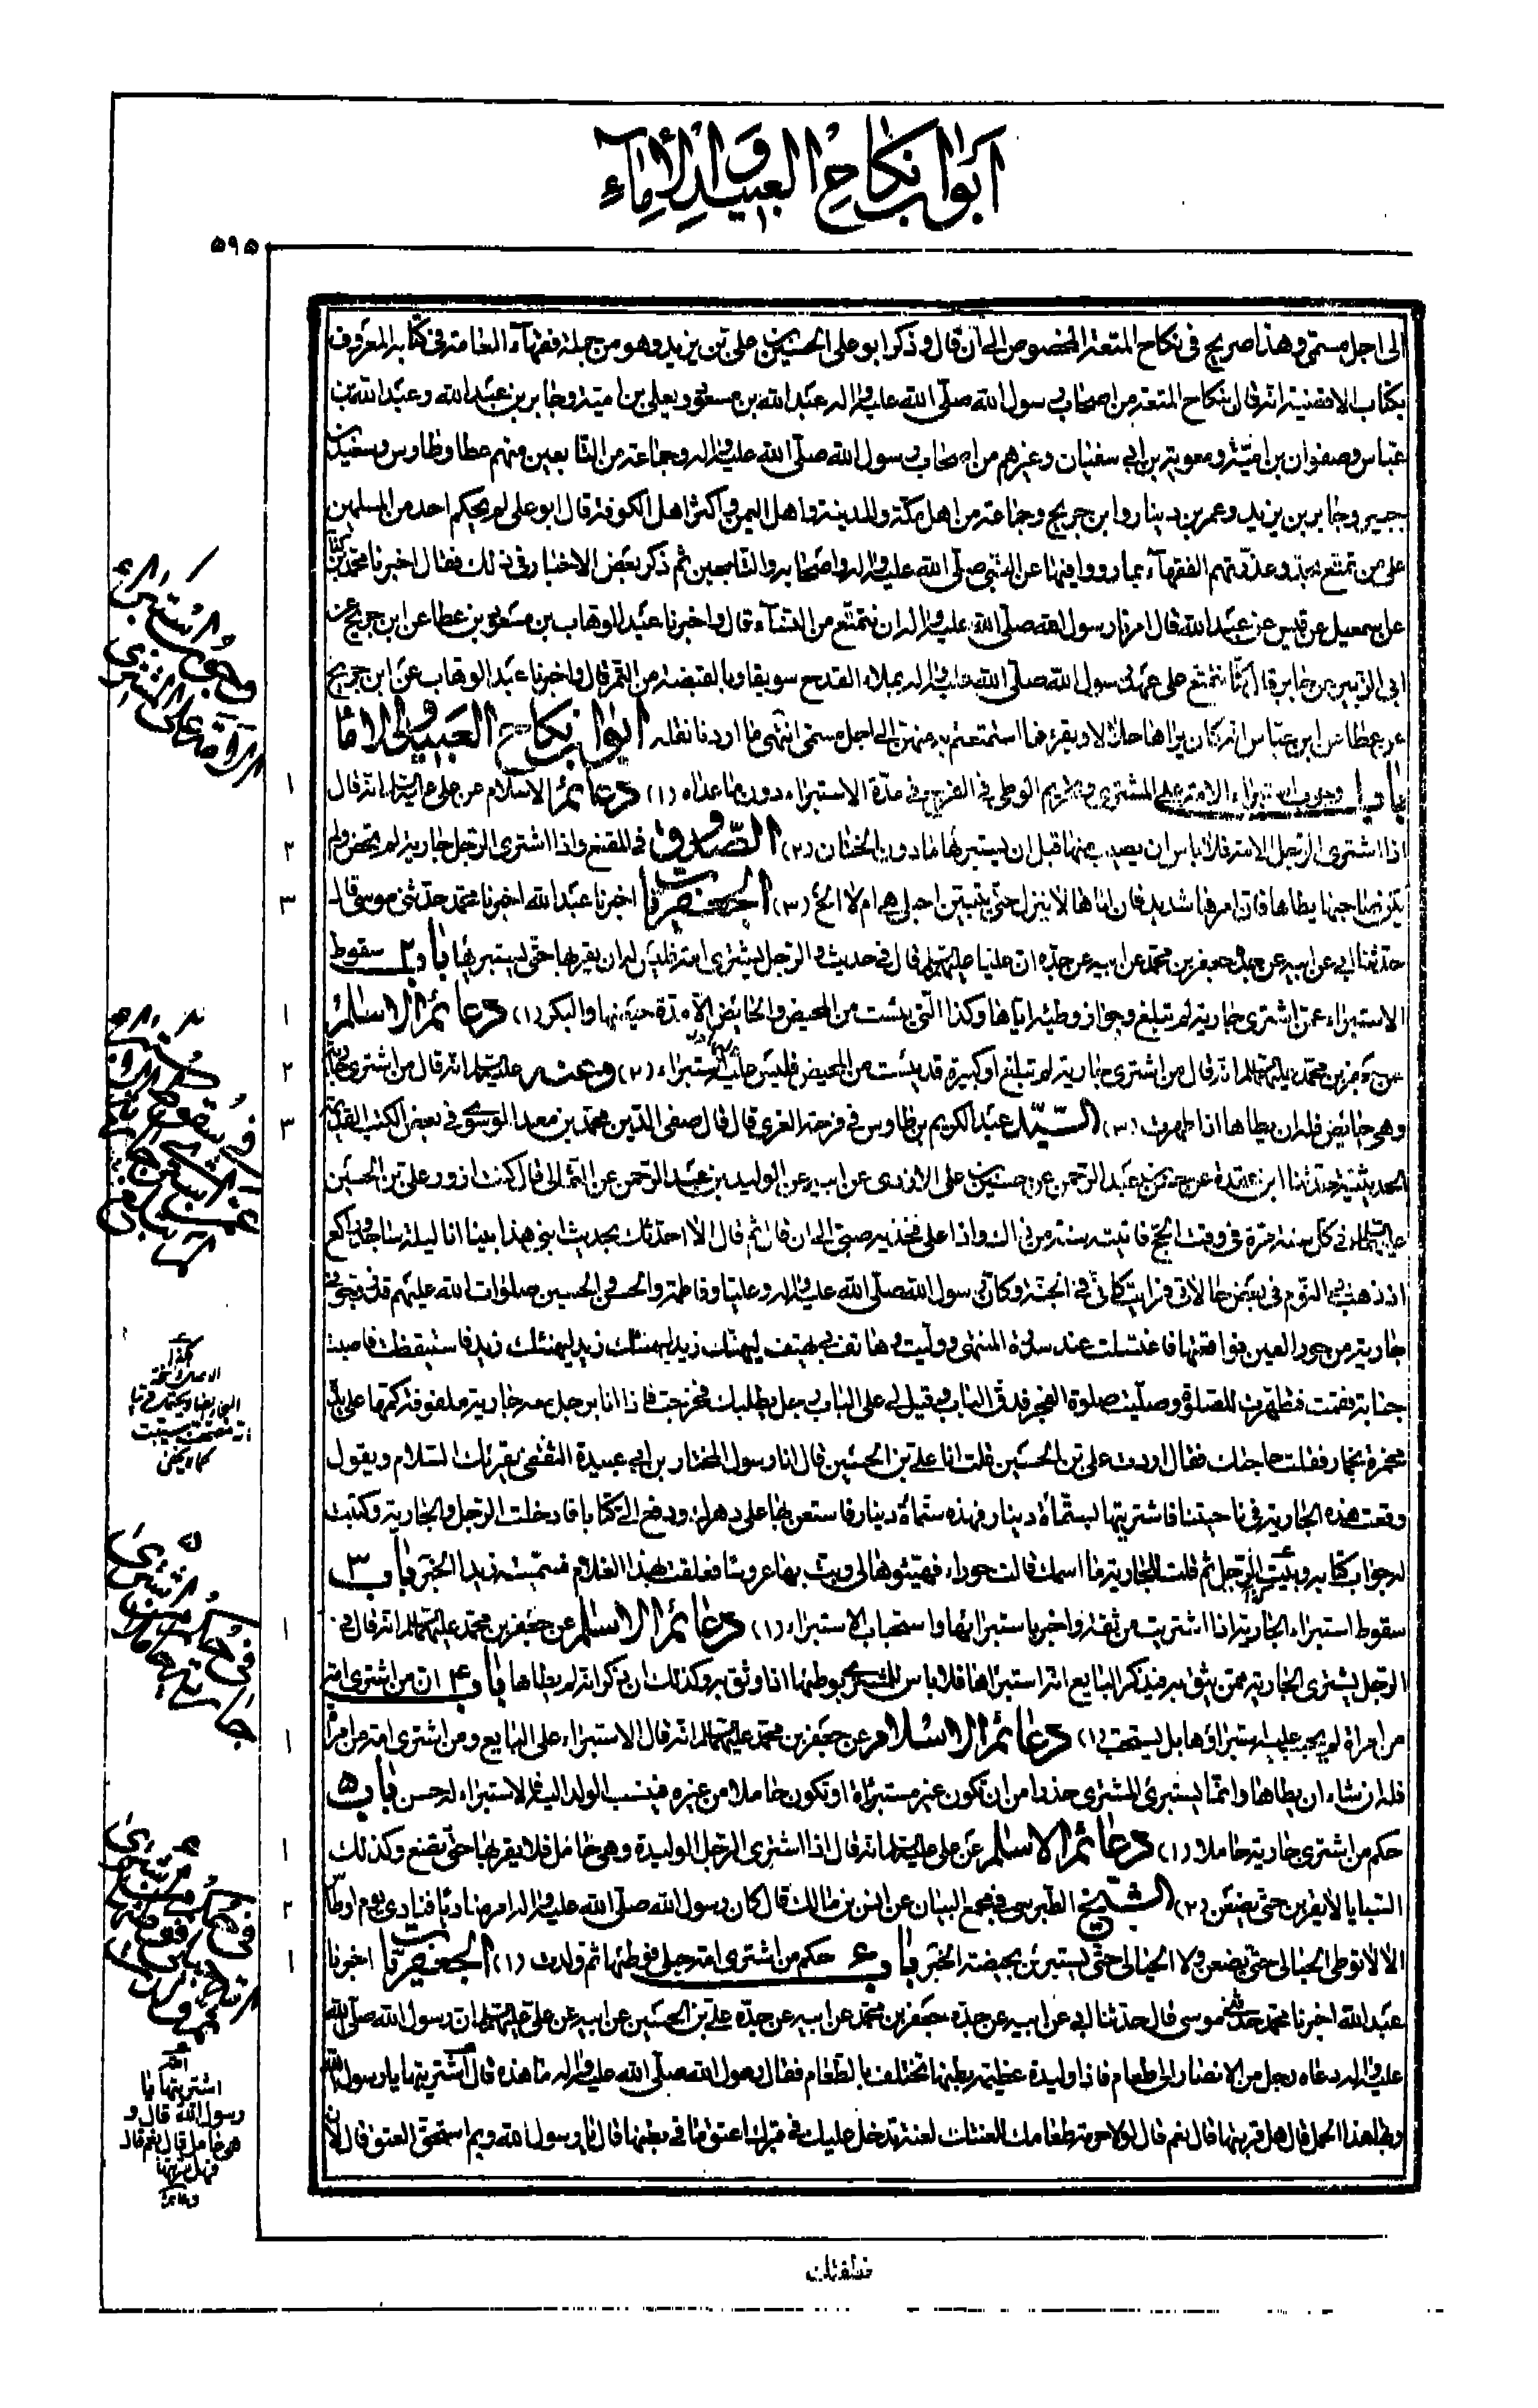 ابواب نكاح العبيد والاماء
۵۹۵
الى اجل مسمى وهذا صريح في نكاح المتعة المخصوص الى ان قال وذكر ابو على الحسين بن على بن يزيد وهو من جملة فقهاء العامة في كتابه المعروف
بكتاب الاقضية انه قال بنكاح المتعة من اصحاب رسول الله صلى الله عليه واله عبد الله بن مسعود ويعلى بن امية وجابر بن عبد الله وعبد الله بن
عباس وصفوان بن امية ومعوية بن ابي سفيان وغيرهم من اصحاب رسول الله صلى الله عليه واله وجماعة من التابعين منهم عطا وطاوس وسعيد بن
جبير وجابر بن يزيد وعمر بن دينار وابن جريج وجماعة من اهل مكة والمدينة واهل اليمن واكثر اهل الكوفة قال ابو على لم يحكم احد من المسلمين
على من تمتع بحد وعذرتهم الفقهاء بما رووا فيها عن النبي صلى الله عليه واله واصحابه والتابعين ثم ذكر بعض الاخبار في ذلك فقال اخبرنا محمد بن
عن اسمعيل عن قيس عن عبد الله قال امرنا رسول الله صلى الله عليه واله ان نتمتع من النساء قال واخبرنا عبد الوهاب بن مسعود بن عطا عن ابن جريج عن
ابي الزبير عن جابر قال كنا نتمتع على عهد رسول الله صلى الله عليه واله بملاء القدح سويقا وبالقبضة من التمر قال واخبرنا عبد الوهاب عن ابن جريج
عن عطا عن ابن عباس انه كان يراها حلالا ويقرء فما استمتعتم به منهن الى اجل مسمى انتهى ما اردنا نقله ابواب نكاح العبيد والاماء
باب ۱ وجوب استبراء الامة على المشترى وتحريم الوطى في الفرج في مدة الاستبراء دون ما عداه (۱) دعائم الاسلام عن على عليه السلام انه قال ۱
اذا اشترى الرجل الامة فلا باس ان يصيب منها قبل ان يستبرئها ما دون الختان (۲) الصدوق في المقنع واذا اشترى الرجل جارية لم تحض ولم ۲
يكن صاحبها يطاها فان امرها شديد فان اتاها لا ينزل حتى يتبين احبلى هي ام لا الخ (۳) الجعفريات اخبرنا عبد الله اخبرنا محمد حدثني موسى قال ۳
حدثنا ابي عن ابيه عن جده جعفر بن محمد عن ابيه عن جده ان عليا عليه السلام قال في حديث والرجل يشترى امة فليس له ان يقربها حتى يستبرئها باب ۲ سقوط
الاستبراء عمن اشترى جارية لم تبلغ وجواز وطئه اياها وكذا التي يئست من المحيض والحائض الا مدة حيضها والبكر (۱) دعائم الاسلام ۱
عن جعفر بن محمد عليهما السلام انه قال من اشترى جارية لم تبلغ او كبيرة قد يئست من المحيض فليس عليه استبراء (۲) وعنه عليه السلام انه قال من اشترى جارية ۲
وهي حائض فله ان يطاها اذا طهرت (۳) السيد عبد الكريم بن طاوس في فرحة الغرى قال قال صفى الدين محمد بن معد الموسوى في بعض الكتب القديمة ۳
الحديثية حدثنا ابن عقدة عن حسن بن عبد الرحمن عن حسين بن على الازدى عن ابيه عن الوليد بن عبد الرحمن عن الثمالى قال كنت ازور على بن الحسين
عليهما السلام في كل سنة مرة في وقت الحج فاتيته سنة من ذاك واذا على فخذيه صبى الى ان قال ثم قال الا احدثك بحديث ابني هذا بينا انا ليلة ساجد وراكع
اذ ذهب بي النوم في بعض حالاتي فرايت كاني في الجنة وكان رسول الله صلى الله عليه واله وعليا وفاطمة والحسن والحسين صلوات الله عليهم قد زوجوني
جارية من حور العين فواقعتها فاغتسلت عند سدرة المنتهى ووليت وهاتف بي يهتف ليهنئك زيد ليهنئك زيد ليهنئك زيد فاستيقظت فاصبت
جنابة فقمت فتطهرت للصلوة وصليت صلوة الفجر فدق الباب وقيل لي على الباب رجل يطلبك فخرجت فاذا انا برجل معه جارية ملفوف كمها على يده
مخمرة بخمار فقلت حاجتك فقال اردت على بن الحسين قلت انا على بن الحسين قال انا رسول المختار بن ابي عبيدة الثقفى يقرئك السلام ويقول
وقعت هذه الجارية في ناحيتنا فاشتريتها بستمأة دينار فهذه ستمأة دينار فاستعن بها على دهرك ودفع الى كتابا فادخلت الرجل والجارية وكتبت
له جواب كتابه وبيت الرجل ثم قلت للجارية ما اسمك قالت حوراء فهيئوها لي وبت بها عروسا فعلقت بهذا الغلام فسميته زيدا الخبر باب ۳
سقوط استبراء الجارية اذا اشتريت من ثقة واخبر باستبرائها واستحباب الاستبراء (۱) دعائم الاسلام عن جعفر بن محمد عليهما السلام انه قال في ۱
الرجل يشترى الجارية ممن يثق به فيذكر البايع انه استبراها فلا باس للمشترى بوطئها اذا وثق به وكذلك ان ذكر انه لم يطاها باب ۴ ان من اشترى امة
من امراة لم يجب عليه استبراؤها بل يستحب (۱) دعائم الاسلام عن جعفر بن محمد عليهما السلام انه قال الاستبراء على البايع ومن اشترى امة من امراة ۱
فله ان شاء ان يطاها وانما يستبرئ المشترى حذرا من ان تكون غير مستبراة او تكون حاملا من غيره فينسب الولد اليه فالاستبراء له حسن باب ۵
حكم من اشترى جارية حاملا (۱) دعائم الاسلام عن على عليه السلام انه قال اذا اشترى الرجل الوليدة وهي حامل فلا يقربها حتى تضع وكذلك ۱
السبايا لا يقربن حتى يضعن (۲) الشيخ الطبرسي في مجمع البيان عن انس بن مالك قال كان رسول الله صلى الله عليه واله امر مناديا فنادى يوم اوطاس ۲
الا لا توطى الحبالى حتى يضعن ولا الحيالى حتى يستبرئن بحيضة الخبر باب ۶ حكم من اشترى امة حبلى فوطئها ثم ولدت (۱) الجعفريات اخبرنا ۱
عبد الله اخبرنا محمد حدثني موسى قال حدثنا ابي عن ابيه عن جده جعفر بن محمد عن ابيه عن جده على بن الحسين عن ابيه عن على عليهما السلام ان رسول الله صلى الله
عليه واله دعاه رجل من الانصار الى طعام فاذا وليدة عظيمة بطنها تختلف بالطعام فقال رسول الله صلى الله عليه واله ما هذه قال اشتريتها يا رسول الله
وبها هذا الحمل قال هل قربتها قال نعم قال لولا حرمة طعامك للعنتك لعنة تدخل عليك في قبرك اعتق ما في بطنها قال يا رسول الله وبم استحق العتق قال لان
وجوب استبراء
الامة على المشترى
امة
اشتريتها يا
رسول الله قال و
هي حامل قال نعم قال